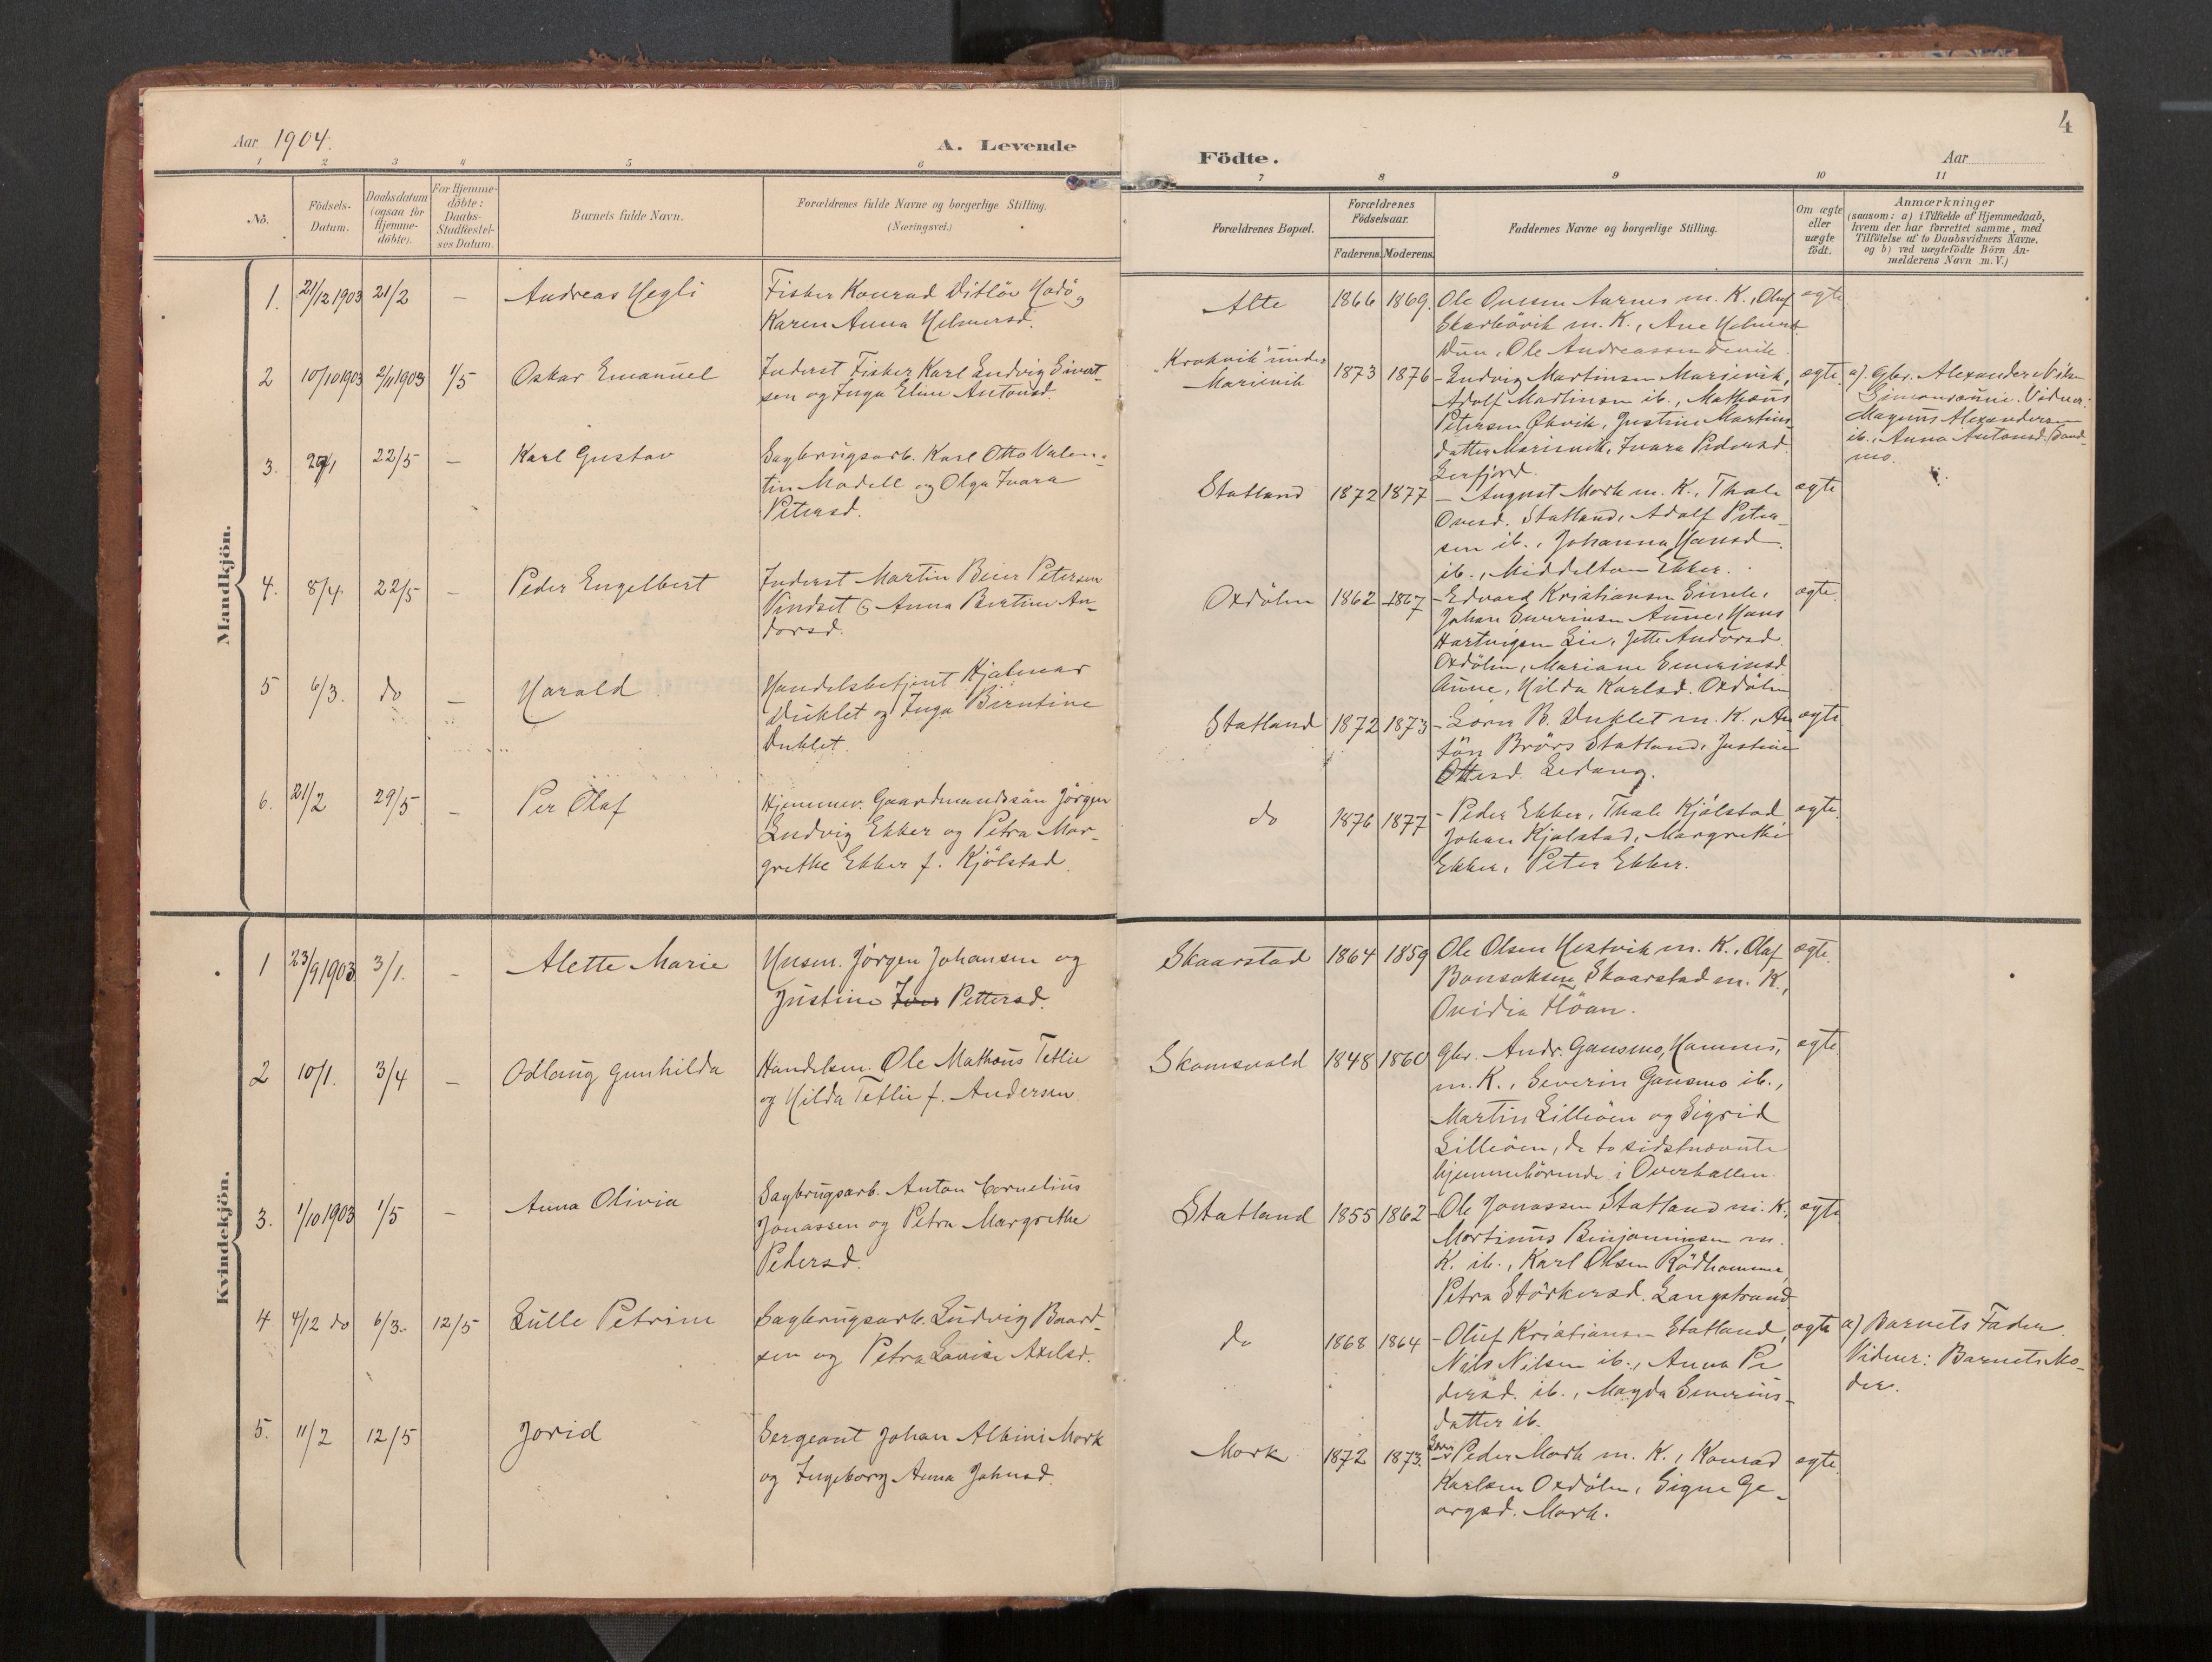 Aar 1904.
A. Levende
Födte.
Aar
4
1 2 3 4 5 6 7 8 9 10 11
No.
Födsels-
Datum.
Daabsdatum
(ogsaa for
Hjemme-
döbte).
For Hjemme-
döbte:
Daabs-
Stadfæstel-
ses Datum.
Barnets fulde Navn.
Forældrenes fulde Navne og borgerlige Stilling.
(Næringsvei.)
Forældrenes Bopæl.
Forældrenes
Födselsaar.
Faderens. Moderens.
Faddernes Navne og borgerlige Stilling.
Om ægte
eller
uægte
födt.
Anmærkninger
(saasom: a) i Tilfælde af Hjemmedaab,
hvem der har forrettet samme, med
Tilföielse af to Daabsvidners Navne,
og b) ved uægtefödte Börn An-
melderens Navn m. V.)
Mandkjön.
1. 21/12 1903 21/2 - Andreas Hegli
Fisker Konrad Ditlöv Hodö og
Karen Anna Helmersd.
Alte 1866 1869.
Ole Ovesen Aarnes m. K., Oluf
Skarhövik m. K., Ane Helmersd.
Dun, Ole Andreassen
ægte
2 10/10 1903 2/11 1903 1/5 Oskar Emanuel
Inderst Fisker Karl Ludvig Sivert-
sen og Inga Eline Antonsd.
"Krokvik" under
Marienvik
1873 1876
- Ludvig Martinsen Marievik,
Adolf Martinsen ib., Mathæus
Petersen Økvik, Justine Martins-
datter Marienvik, Ivara Pedersd.
Lerfjord.
ægte.
a). Gbr. Alexander Nils
Vidner:
Magnus Alexandersen
ib., Anna Antonsd. Sand-
mo.
3. 29/1 22/5 - Karl Gustav
Sagbrugsarb. Karl Otto Valen-
tin Modell og Olga Ivara
Petersd.
Statland 1872 1877
- August Mork m. K., Thale
Ovesd. Statland, Adolf Peter-
sen ib., Johanna Hansd.
ib., Middelton Ekker.
ægte
4. 8/4 22/5 - Peder Engelbert
Inderst Martin Beier Petersen
Vindset & Anna Bertine An-
dorsd.
Oxdölen 1862 1867
- Edvard Kristiansen Simle,
Johan Severinsen Aune, Hans
Hartvigsen Lie, Jette Andorsd.
Oxdölen, Mariane Severinsd.
Aune, Hilda Karlsd. Oxdölen
ægte.
5 6/3. do - Harald
Handelsbetjent Hjalmar
Duklet og Inga Berntine
Duklet.
Statland 1872 1873
- Lorns B. Duklet m. K., An
fön Brörs Statland, Justine
Ottesd. Ledang.
ægte
6. 21/2 29/5 - Per Olaf
Hjemmev. Gaardmandssön Jörgen
Ludvig Ekker og Petra Mar-
grethe Ekker f. Kjölstad.
do 1876 1877
- Peder Ekker, Thale Kjölstad
Johan Kjölstad, Margrethe
Ekker, Peter Ekker.
ægte.
Kvindekjön.
1 23/9 1903 3/1. - Alette Marie
Husm. Jörgen Johansen og
Justine Pettersd.
Skaarstad 1864 1859
Ole Olsen Hestvik m. K., Olaf
Bonsaksen Skaarstad m. K.,
Ovidia Höan.
ægte.
2 10/1. 3/4 - Odlaug Gunhilda
Handelsm. Ole Mathæus Tetlie
og Hilda Tetlie f. Andersen.
Skomsvold 1848 1860
Gbr. Andr. Gansmo, Hamnes,
m. K., Severin Gansmo ib.,
Martin Lilleöen og Sigrid
Lilleöen, de to sidstnævnte
hjemmehörende i Overhallen.
ægte
3. 1/10 1903 1/5 - Anna Olivia
Sagbrugsarb. Anton Cornelius
Jonassen og Petra Margrethe
Pedersd.
Statland 1855 1862
- Ole Jonassen Statland m. K.,
Martinus Binjaminsen m.
K. ib., Karl Olsen Rödhammer,
Petra Störkersd. Langstrand
ægte
4 4/12 do 6/3. 12/5 Lulle Petrine
Sagbrugsarb. Ludvig Baard-
sen og Petra Lovise Axelsd.
do 1868 1864
- Oluf Kristiansen Statland,
Nils Nilsen ib., Anna Pe
dersd. ib., Magda Severins-
datter ib.
ægte
a) Barnets Fader.
Vidner: Barnets Mo-
der.
5. 11/2 12/5 Jorid
Sergeant Johan Albini Mork
og Ingeborg Anna Johnsd.
Mork 1872 1873.
Peder Mork m. K., Konrad
Karlsen Oxdölen, Signe Ge-
orgsd. Mork.
ægte.